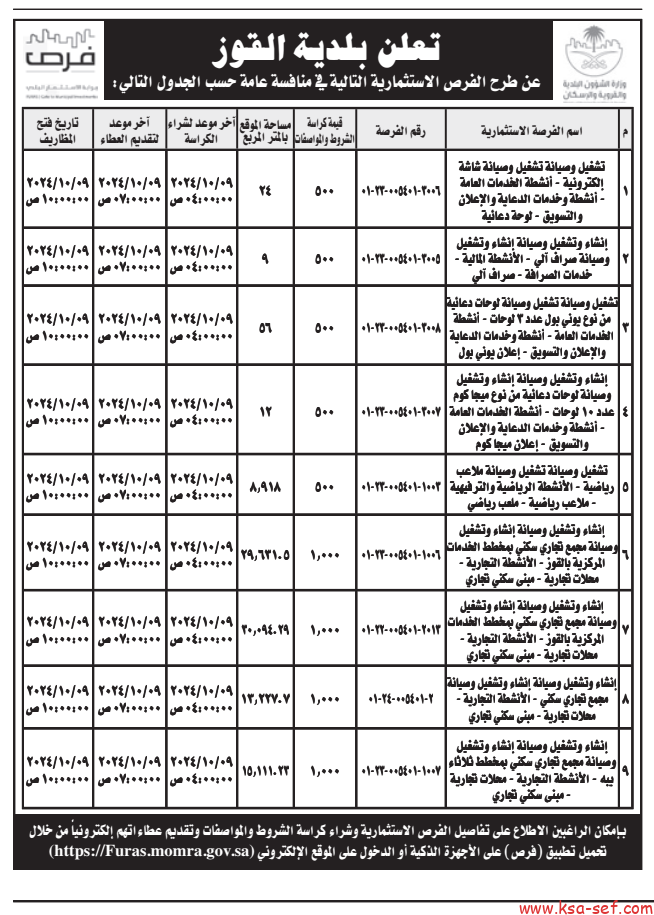 فرص
بوابة الاستثمار البلدي
وزارة الشؤون البلدية
والقروية والإسكان
تعلن بلدية القوز
عن طرح الفرص الاستثمارية التالية في منافسة عامة حسب الجدول التالي:
م | اسم الفرصة الاستثمارية | رقم الفرصة | قيمة كراسة الشروط والمواصفات | مساحة الموقع بالمتر المربع | آخر موعد لشراء الكراسة | آخر موعد لتقديم العطاء | تاريخ فتح المظاريف
١ | تشغيل وصيانة تشغيل وصيانة شاشة إلكترونية - أنشطة الخدمات العامة - أنشطة وخدمات الدعاية والإعلان والتسويق - لوحة دعائية | ٠١-٢٣-٠٠٥٤٠١-٣٠٠٦ | ٥٠٠ | ٢٤ | ٢٠٢٤/١٠/٠٩ ٠٤:٠٠:٠٠ ص | ٢٠٢٤/١٠/٠٩ ٠٧:٠٠:٠٠ ص | ٢٠٢٤/١٠/٠٩ ١٠:٠٠:٠٠ ص
٢ | إنشاء وتشغيل وصيانة إنشاء وتشغيل وصيانة صراف آلي - الأنشطة المالية - خدمات الصرافة - صراف آلي | ٠١-٢٣-٠٠٥٤٠١-٣٠٠٥ | ٥٠٠ | ٩ | ٢٠٢٤/١٠/٠٩ ٠٤:٠٠:٠٠ ص | ٢٠٢٤/١٠/٠٩ ٠٧:٠٠:٠٠ ص | ٢٠٢٤/١٠/٠٩ ١٠:٠٠:٠٠ ص
٣ | تشغيل وصيانة تشغيل وصيانة لوحات دعائية من نوع يوني بول عدد ٣ لوحات - أنشطة الخدمات العامة - أنشطة وخدمات الدعاية والإعلان والتسويق - إعلان يوني بول | ٠١-٢٣-٠٠٥٤٠١-٣٠٠٨ | ٥٠٠ | ٥٦ | ٢٠٢٤/١٠/٠٩ ٠٤:٠٠:٠٠ ص | ٢٠٢٤/١٠/٠٩ ٠٧:٠٠:٠٠ ص | ٢٠٢٤/١٠/٠٩ ١٠:٠٠:٠٠ ص
٤ | إنشاء وتشغيل وصيانة إنشاء وتشغيل وصيانة لوحات دعائية من نوع ميجا كوم عدد ١٠ لوحات - أنشطة الخدمات العامة - أنشطة وخدمات الدعاية والإعلان والتسويق - إعلان ميجا كوم | ٠١-٢٣-٠٠٥٤٠١-٣٠٠٧ | ٥٠٠ | ١٢ | ٢٠٢٤/١٠/٠٩ ٠٤:٠٠:٠٠ ص | ٢٠٢٤/١٠/٠٩ ٠٧:٠٠:٠٠ ص | ٢٠٢٤/١٠/٠٩ ١٠:٠٠:٠٠ ص
٥ | تشغيل وصيانة تشغيل وصيانة ملاعب رياضية - الأنشطة الرياضية والترفيهية - ملاعب رياضية - ملعب رياضي | ٠١-٢٣-٠٠٥٤٠١-١٠٠٣ | ٥٠٠ | ٨,٩١٨ | ٢٠٢٤/١٠/٠٩ ٠٤:٠٠:٠٠ ص | ٢٠٢٤/١٠/٠٩ ٠٧:٠٠:٠٠ ص | ٢٠٢٤/١٠/٠٩ ١٠:٠٠:٠٠ ص
٦ | إنشاء وتشغيل وصيانة إنشاء وتشغيل وصيانة مجمع تجاري سكني بمخطط الخدمات المركزية بالقوز - الأنشطة التجارية - محلات تجارية - مبنى سكني تجاري | ٠١-٢٣-٠٠٥٤٠١-١٠٠٦ | ١,٠٠٠ | ٢٩,٦٣١.٥ | ٢٠٢٤/١٠/٠٩ ٠٤:٠٠:٠٠ ص | ٢٠٢٤/١٠/٠٩ ٠٧:٠٠:٠٠ ص | ٢٠٢٤/١٠/٠٩ ١٠:٠٠:٠٠ ص
٧ | إنشاء وتشغيل وصيانة إنشاء وتشغيل وصيانة مجمع تجاري سكني بمخطط الخدمات المركزية بالقوز - الأنشطة التجارية - محلات تجارية - مبنى سكني تجاري | ٠١-٢٢-٠٠٥٤٠١-٢٠١٣ | ١,٠٠٠ | ٣٠,٠٩٤.٢٩ | ٢٠٢٤/١٠/٠٩ ٠٤:٠٠:٠٠ ص | ٢٠٢٤/١٠/٠٩ ٠٧:٠٠:٠٠ ص | ٢٠٢٤/١٠/٠٩ ١٠:٠٠:٠٠ ص
٨ | إنشاء وتشغيل وصيانة إنشاء وتشغيل وصيانة مجمع تجاري سكني - الأنشطة التجارية - محلات تجارية - مبنى سكني تجاري | ٠١-٢٤-٠٠٥٤٠١-٢ | ١,٠٠٠ | ١٣,٢٢٧.٧ | ٢٠٢٤/١٠/٠٩ ٠٤:٠٠:٠٠ ص | ٢٠٢٤/١٠/٠٩ ٠٧:٠٠:٠٠ ص | ٢٠٢٤/١٠/٠٩ ١٠:٠٠:٠٠ ص
٩ | إنشاء وتشغيل وصيانة إنشاء وتشغيل وصيانة مجمع تجاري سكني بمخطط ثلاثاء يبه - الأنشطة التجارية - محلات تجارية - مبنى سكني تجاري | ٠١-٢٣-٠٠٥٤٠١-١٠٠٧ | ١,٠٠٠ | ١٥,١١١.٢٣ | ٢٠٢٤/١٠/٠٩ ٠٤:٠٠:٠٠ ص | ٢٠٢٤/١٠/٠٩ ٠٧:٠٠:٠٠ ص | ٢٠٢٤/١٠/٠٩ ١٠:٠٠:٠٠ ص
بإمكان الراغبين الاطلاع على تفاصيل الفرص الاستثمارية وشراء كراسة الشروط والمواصفات وتقديم عطاءاتهم إلكترونياً من خلال
تحميل تطبيق (فرص) على الأجهزة الذكية أو الدخول على الموقع الإلكتروني (https://Furas.momra.gov.sa)
www.ksa-sef.com